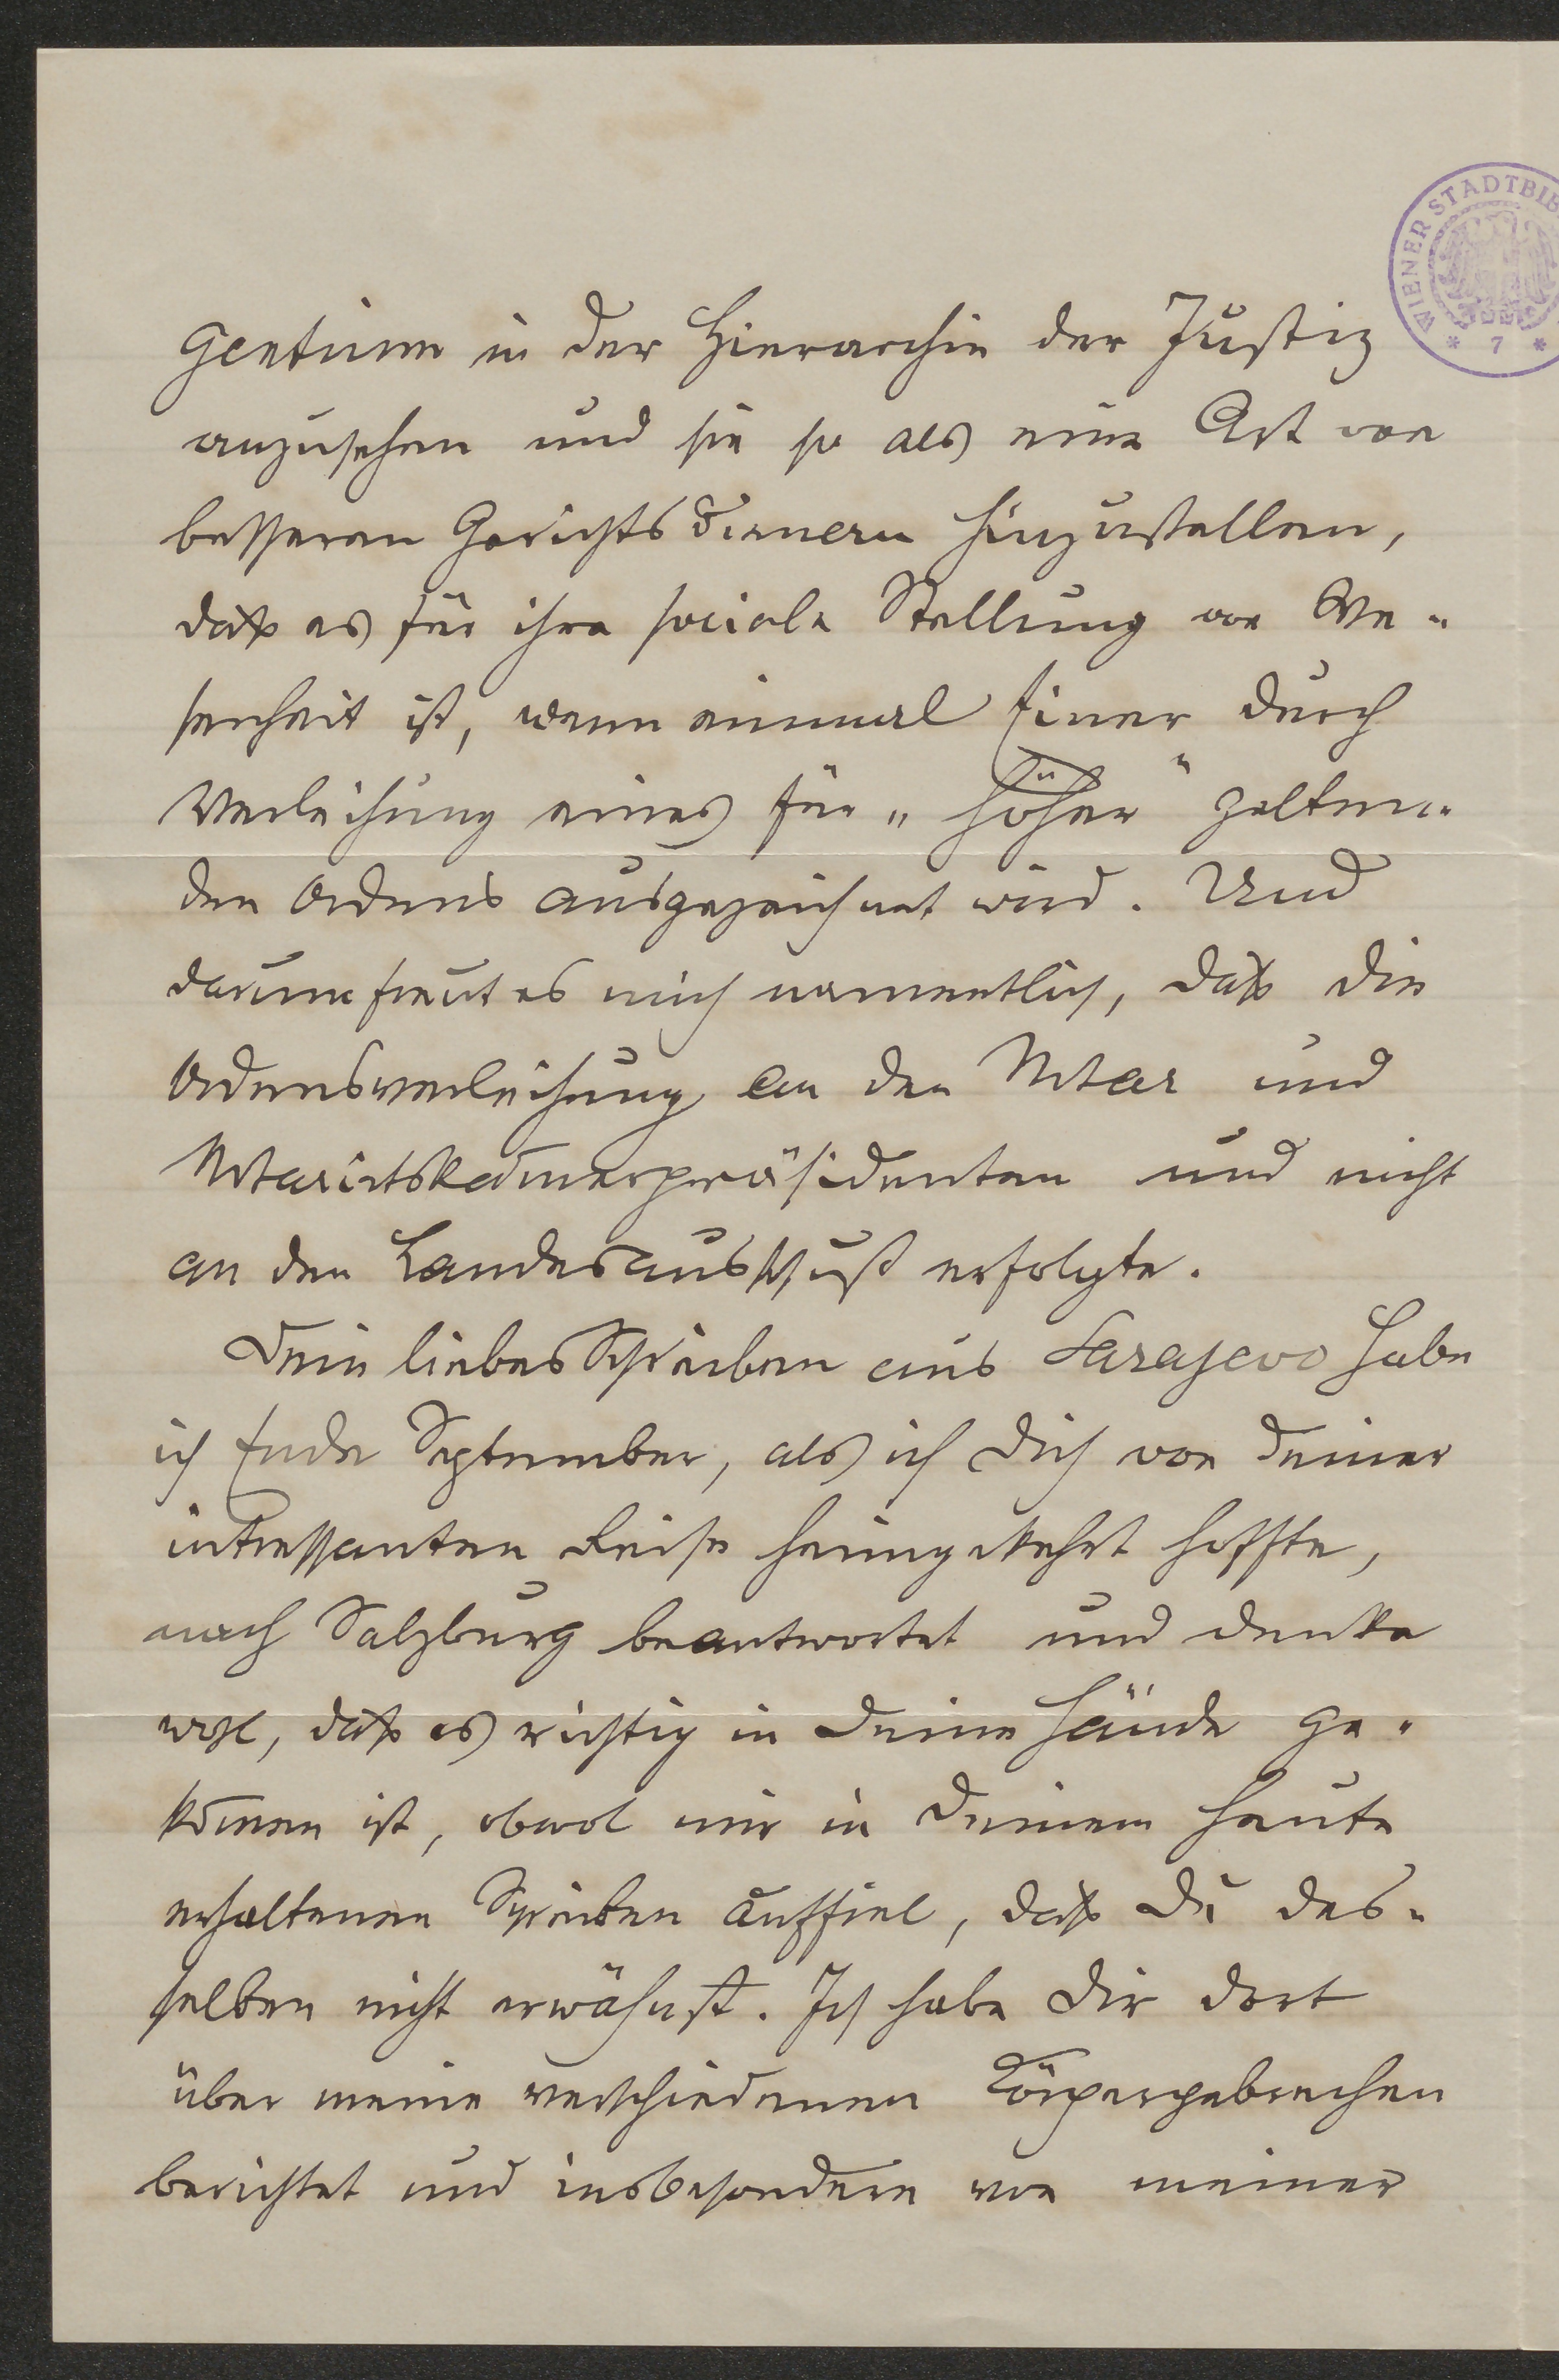 gentium in der Hierarchie der Justiz
anzusehen und sie so als eine Art von
besseren Gerichtsdienern hinzustellen,
daß es für ihre sociale Stellung von We-
senheit ist, wenn einmal Einer durch
Verleihung eines für „höher" gelten-
den Ordens ausgezeichnet wird. Und
darum freut es mich namentlich, daß die
Ordensverleihung an den Notar und
Notariatskam̄erpräsidenten und nicht
an den Landesausschuß erfolgte.
Dein liebes Schreiben aus Sarajevo habe
ich Ende September, als ich Dich von Deiner
intressanten Reise heimgekehrt hoffte,
nach Salzburg beantwortet und denke
wol, daß es richtig in Deine Hände ge-
kom̄en ist, obwol mir in Deinem heute
erhaltenen Schreiben auffiel, daß Du des-
selben nicht erwähnst. Ich habe Dir dort
über meine verschiedenen Körpergebrechen
berichtet und insbesondere von meiner
WIENER STADTBIB
* 7 *